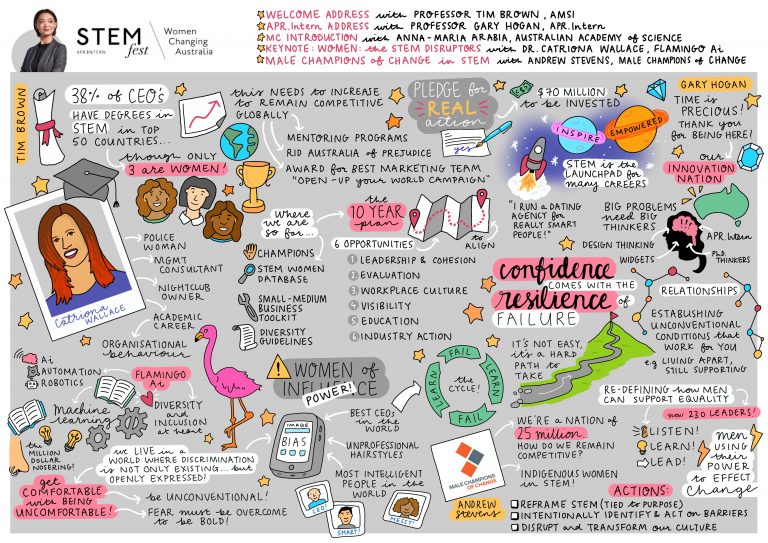 STEM
APR.INTERN
fest
Women
Changing
Australia
WELCOME ADDRESS with PROFESSOR TIM BROWN, AMSI
APR.Intern ADDRESS with PROFESSOR GARY HOGAN, APR.Intern
MC INTRODUCTION with ANNA-MARIA ARABIA, AUSTRALIAN ACADEMY of SCIENCE
KEYNOTE: WOMEN: the STEM DISRUPTORS with DR. CATRIONA WALLACE, FLAMINGO Ai
MALE CHAMPIONS of CHANGE in STEM with ANDREW STEVENS, MALE CHAMPIONS of CHANGE
TIM BROWN
38% of CEO's
HAVE DEGREES in
STEM in TOP
50 COUNTRIES...
though only
3 are WOMEN!
this NEEDS to INCREASE
to REMAIN COMPETITIVE
GLOBALLY
MENTORING PROGRAMS
RID AUSTRALIA of PREJUDICE
AWARD for BEST MARKETING TEAM
"OPEN-UP your WORLD CAMPAIGN"
PLEDGE for
REAL
action
yes
$70 MILLION
to be INVESTED
INSPIRE
EMPOWERED
STEM is the
LAUNCHPAD for
many CAREERS
GARY HOGAN
TIME is
PRECIOUS!
THANK you
for BEING HERE!
our
INNOVATION
NATION
"I RUN a DATING
AGENCY for
REALLY SMART
PEOPLE!"
BIG PROBLEMS
need BIG
THINKERS
DESIGN THINKING
WIDGETS
APR.Intern
Ph.D.
THINKERS
Where we
are so
far...
CHAMPIONS
STEM WOMEN
DATABASE
SMALL-MEDIUM
BUSINESS
TOOLKIT
DIVERSITY
GUIDELINES
the
10 YEAR
plan
to
ALIGN
6 OPPORTUNITIES
1 LEADERSHIP & COHESION
2 EVALUATION
3 WORKPLACE CULTURE
4 VISIBILITY
5 EDUCATION
6 INDUSTRY ACTION
Catriona
WALLACE
POLICE
WOMAN
MGMT
CONSULTANT
NIGHTCLUB
OWNER
ACADEMIC
CAREER
ORGANISATIONAL
behaviour
confidence
COMES WITH THE
resilience of
FAILURE
IT'S NOT EASY,
it's A HARD
PATH to
TAKE
RELATIONSHIPS
ESTABLISHING
UNCONVENTIONAL
CONDITIONS that
WORK for YOU
e.g LIVING APART,
STILL SUPPORTING
Ai
AUTOMATION
ROBOTICS
FLAMINGO
Ai
Machine
learning
DIVERSITY
and
INCLUSION
at heart
the
MILLION
DOLLAR
NOSERING!
we LIVE in a
WORLD WHERE DISCRIMINATION
IS NOT ONLY EXISTING... but
OPENLY EXPRESSED!
get
COMFORTABLE
with BEING
UNCOMFORTABLE!
be UNCONVENTIONAL!
FEAR must be OVERCOME
to be BOLD!
WOMEN of
INFLUENCE
POWER!
IMAGE
BIAS
BEST CEOs
in the
WORLD
UNPROFESSIONAL
HAIRSTYLES
MOST INTELLIGENT
PEOPLE in the
WORLD
CEO!
SMART!
MESSY!
FAIL
LEARN
FAIL
LEARN
the
CYCLE!
MALE CHAMPIONS
OF CHANGE
ANDREW
Stevens
WE'RE a NATION of
25 million...
HOW do WE REMAIN
COMPETITIVE?
INDIGENOUS WOMEN
in STEM!
RE-DEFINING how MEN
CAN SUPPORT EQUALITY
now 230 LEADERS!
LISTEN!
LEARN!
LEAD!
men
USING
their
POWER
to EFFECT
Change
ACTIONS:
REFRAME STEM (TIED to PURPOSE)
INTENTIONALLY IDENTIFY & ACT on BARRIERS
DISRUPT and TRANSFORM our CULTURE